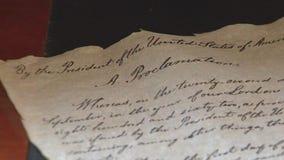 By the President of the United States of Amer
A Proclamation.
Whereas, on the twenty second
September, in the year of our London
eight hundred and sixty two, a proc
was issued by the President of the U
containing, among other things, th
the first day of